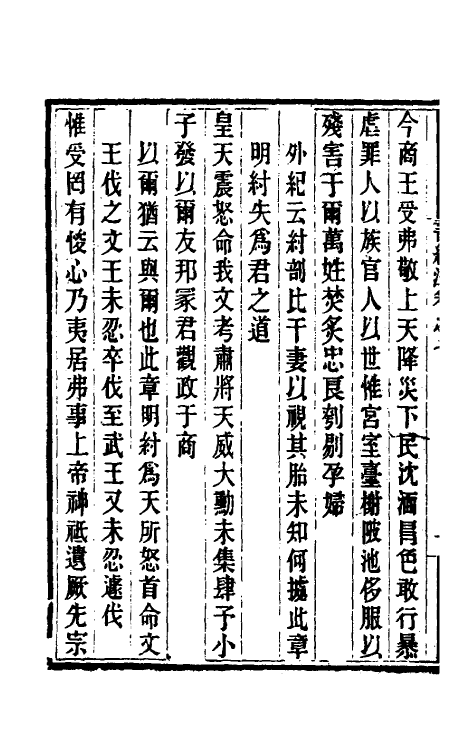 今商王受弗敬上天降災下民沈湎冒色敢行暴
虐罪人以族官人以世惟宮室臺榭陂池侈服以
殘害于爾萬姓焚炙忠良刳剔孕婦
外紀云紂剖比干妻以視其胎未知何據此章
明紂失爲君之道
皇天震怒命我文考肅將天威大勳未集肆予小
子發以爾友邦冢君觀政于商
以爾猶云與爾也此章明紂爲天所怒首命文
王伐之文王未忍卒伐至武王又未忍遽伐
惟受罔有悛心乃夷居弗事上帝神祗遺厥先宗